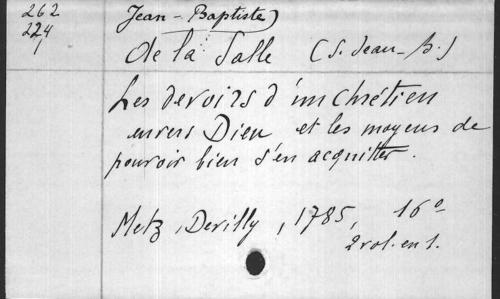 262 Jean-Baptiste)
224 de la Salle (S. Jean-B.)
Les devoirs d'un Chrétien
envers Dieu et les moyens de
pouvoir bien s'en acquitter.
Metz, Devilly, 1785, 16°
2 vol. en 1.